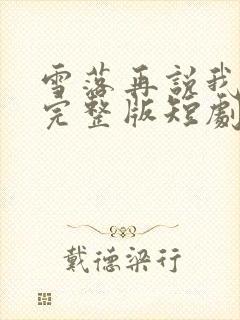 雪落再說我
完整版短劇
戴德梁行